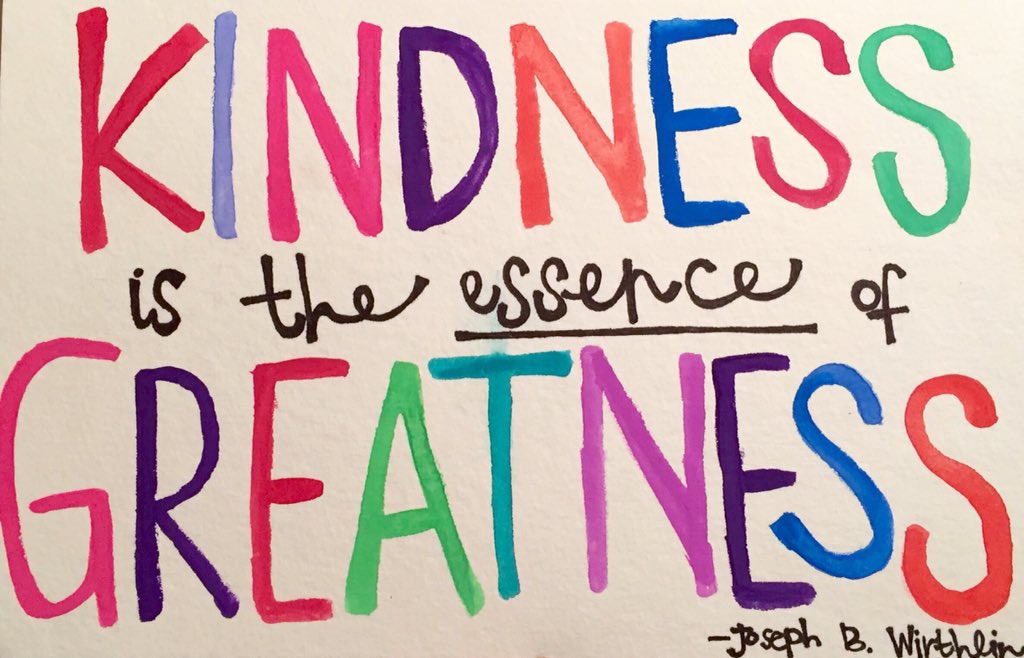 KINDNESS
is the essence of
GREATNESS
-Joseph B. Wirthlin